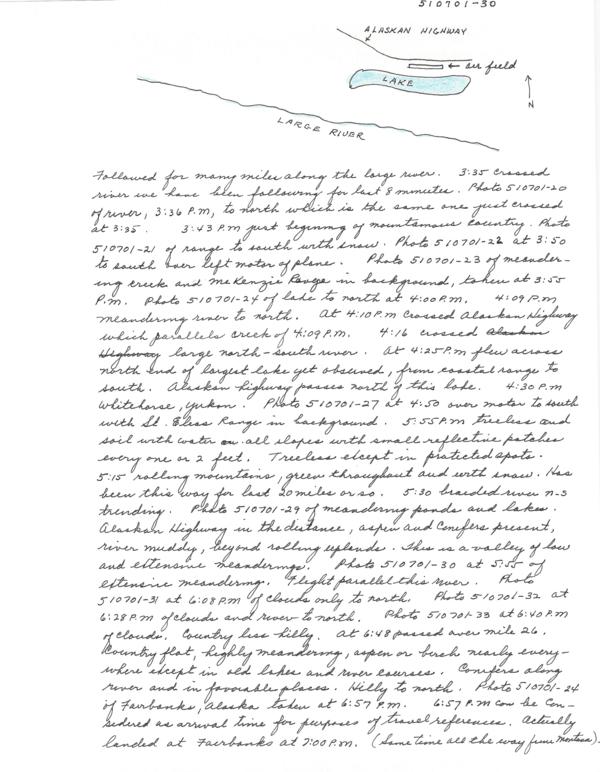 510701-30
ALASKAN HIGHWAY
← air field
LAKE
N
LARGE RIVER
Followed for many miles along the large river. 3:35 crossed
river we have been following for last 8 minutes. Photo 510701-20
of river, 3:36 P.M, to north which is the same one just crossed
at 3:35. 3:43 P.M just beginning of mountainous country. Photo
510701-21 of range to south with snow. Photo 510701-22 at 3:50
to south over left motor of plane. Photo 510701-23 of meander-
ing creek and McKenzie Range in background, taken at 3:55
P.M. Photo 510701-24 of lake to north at 4:00 P.M. 4:09 P.M
meandering river to north. At 4:10 P.M crossed Alaskan Highway
which parallels creek of 4:09 P.M. 4:16 crossed Alaskan
Highway large north-south river. At 4:25 P.M flew across
north end of largest lake yet observed, from coastal range to
south. Alaskan highway passes north of this lake. 4:30 P.M
Whitehorse, Yukon. Photo 510701-27 at 4:50 over motor to south
with St. Eless Range in background. 5:55 P.M treeless and
soil with water on all slopes with small reflective patches
every one or 2 feet. Treeless except in protected spots.
5:15 rolling mountains, green throughout and with snow. Has
been this way for last 20 miles or so. 5:30 braided river n-s
trending. Photo 510701-29 of meandering ponds and lakes.
Alaskan Highway in the distance, aspen and conifers present,
river muddy, beyond rolling uplands. This is a valley of low
and extensive meanderings. Photo 510701-30 at 5:55 of
extensive meandering. Flight parallel this river. Photo
510701-31 at 6:08 P.M of clouds only to north. Photo 510701-32 at
6:28 P.M of clouds and river to north. Photo 510701-33 at 6:40 P.M
of clouds. Country less hilly. At 6:48 passed over mile 26.
Country flat, highly meandering, aspen or birch nearly every-
where except in old lakes and river courses. Conifers along
river and in favorable places. Hilly to north. Photo 510701-24
of Fairbanks, Alaska taken at 6:57 P.M. 6:57 P.M can be con-
sidered as arrival time for purposes of travel references. Actually
landed at Fairbanks at 7:00 P.M. (Same time all the way from Montana).